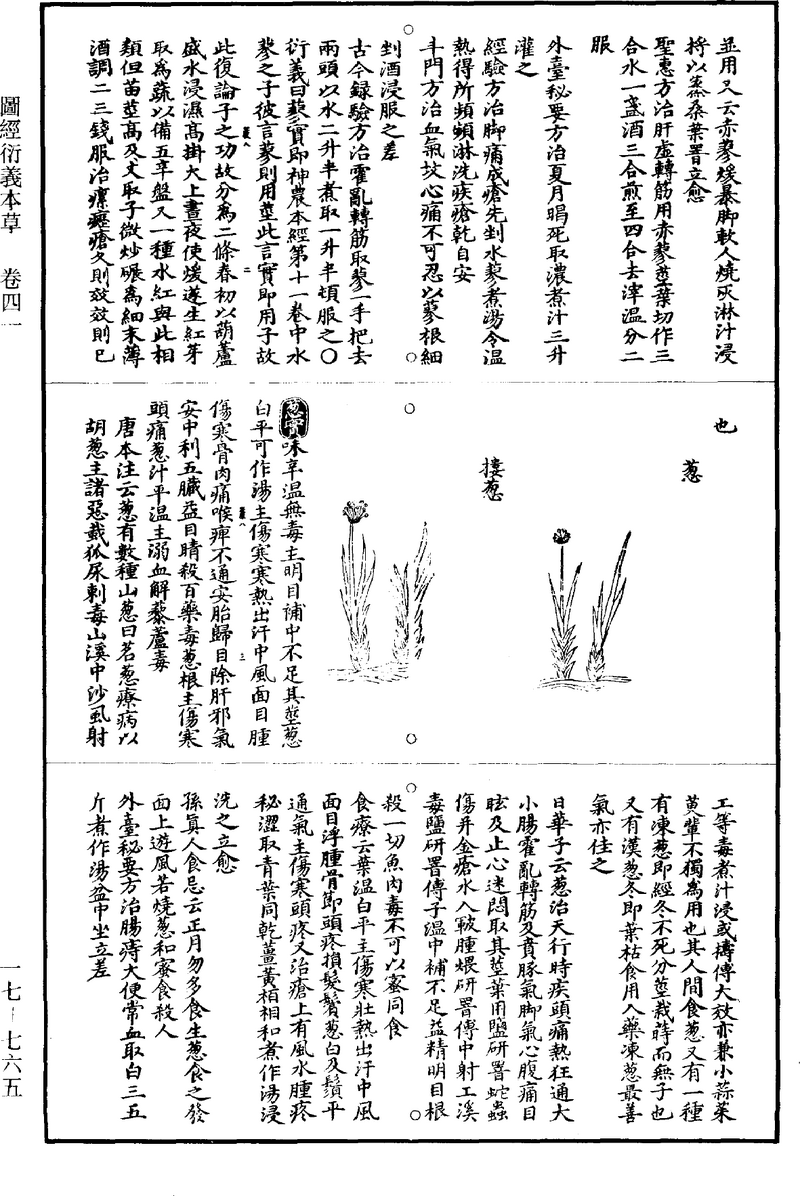 圖經衍義本草　卷四一
一七－七六五
並用又云赤蓼煖暴脚軟人燒灰淋汁浸
捋以蒸桑葉罯立愈
聖惠方治肝虛轉筋用赤蓼莖葉切作三
合水一盞酒三合煎至四合去滓溫分二
服
外臺秘要方治夏月暍死取濃煮汁三升
灌之
經驗方治脚痛成瘡先剉水蓼煮湯令溫
熱得所頻頻淋洗疾瘡乾自安
斗門方治血氣攻心痛不可忍以蓼根細
剉酒浸服之差
古今録驗方治霍亂轉筋取蓼一手把去
兩頭以水二升半煮取一升半頓服之○
衍義曰蓼實即神農本經第十一卷中水
蓼之子彼言蓼則用莖此言實即用子故
此復論子之功故分為二條春初以葫蘆
盛水浸濕高掛火上晝夜使煖遂生紅芽
取為蔬以備五辛盤又一種水紅與此相
類但苗莖高及丈取子微炒碾為細末薄
酒調二三錢服治瘰癧瘡久則效效則已
也
葱
樓葱
葱實味辛溫無毒主明目補中不足其莖葱
白平可作湯主傷寒寒熱出汗中風面目腫
傷寒骨肉痛喉痺不通安胎歸目除肝邪氣
安中利五臟益目睛殺百藥毒葱根主傷寒
頭痛葱汁平溫主溺血解藜蘆毒
唐本注云葱有數種山葱曰茖葱療病以
胡葱主諸惡蛓狐尿刺毒山溪中沙虱射
工等毒煮汁浸或擣傅大效亦兼小蒜茱
萸輩不獨為用也其人間食葱又有一種
有凍葱即經冬不死分莖栽蒔而無子也
又有漢葱冬即葉枯食用入藥凍葱最善
氣亦佳之
日華子云葱治天行時疾頭痛熱狂通大
小腸霍亂轉筋及賁豚氣脚氣心腹痛目
眩及止心迷悶取其莖葉用鹽研罯蛇蟲
傷并金瘡水入皸腫煨研罯傅中射工溪
毒鹽研罯傅子溫中補不足益精明目根
殺一切魚肉毒不可以蜜同食
食療云葉溫白平主傷寒壯熱出汗中風
面目浮腫骨節頭疼損髮鬢葱白及鬚平
通氣主傷寒頭疼又治瘡上有風水腫疼
秘澀取青葉同乾薑黃栢相和煮作湯浸
洗之立愈
孫真人食忌云正月勿多食生葱食之發
面上遊風若燒葱和蜜食殺人
外臺秘要方治腸痔大便常血取白三五
斤煮作湯盆中坐立差